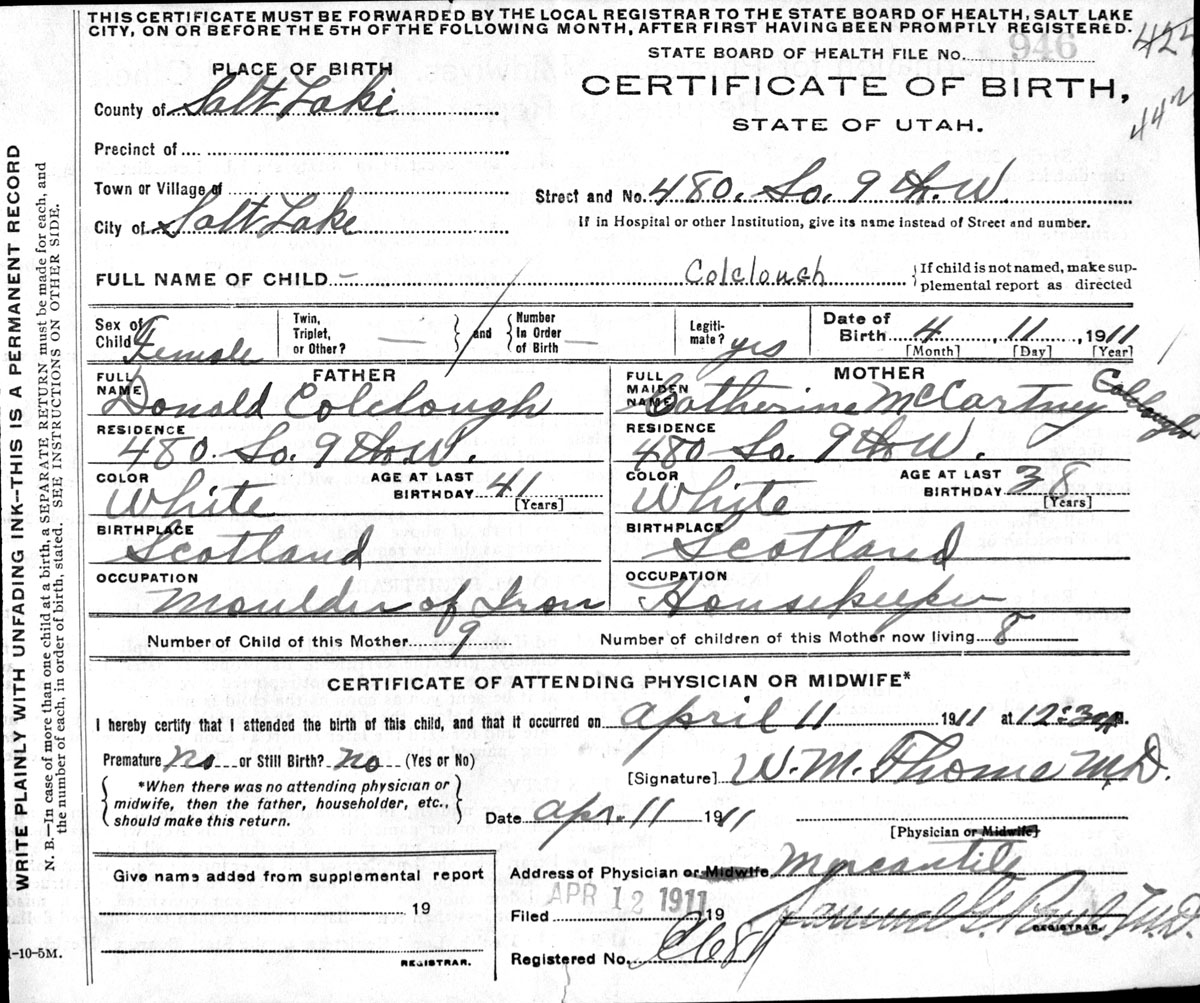 THIS CERTIFICATE MUST BE FORWARDED BY THE LOCAL REGISTRAR TO THE STATE BOARD OF HEALTH, SALT LAKE
CITY, ON OR BEFORE THE 5TH OF THE FOLLOWING MONTH, AFTER FIRST HAVING BEEN PROMPTLY REGISTERED.
STATE BOARD OF HEALTH FILE No. 946
442
PLACE OF BIRTH
CERTIFICATE OF BIRTH,
STATE OF UTAH.
County of Salt Lake
Precinct of
Town or Village of
Street and No. 480. So. 9th. W.
City of Salt Lake
If in Hospital or other Institution, give its name instead of Street and number.
FULL NAME OF CHILD — Colclough
{If child is not named, make sup-
plemental report as directed
Sex of Child Female
Twin, Triplet, or Other? — } and { Number In Order of Birth —
Legiti- mate? yes
Date of Birth 4, 11, 1911
[Month] [Day] [Year]
FATHER
FULL NAME Donald Colclough
RESIDENCE 480. So. 9th. W.
COLOR White
AGE AT LAST BIRTHDAY 41 [Years]
BIRTHPLACE Scotland
OCCUPATION Moulder of Iron
MOTHER
FULL MAIDEN NAME Catherine McCartney Colclough
RESIDENCE 480 So. 9th W.
COLOR White
AGE AT LAST BIRTHDAY 38 [Years]
BIRTHPLACE Scotland
OCCUPATION Housekeeper
Number of Child of this Mother 9
Number of children of this Mother now living 8
CERTIFICATE OF ATTENDING PHYSICIAN OR MIDWIFE*
I hereby certify that I attended the birth of this child, and that it occurred on April 11 1911 at 12:30
Premature no or Still Birth? no (Yes or No)
{ *When there was no attending physician or
midwife, then the father, householder, etc.,
should make this return. }
[Signature] W. M. Thome M.D.
Date Apr. 11 1911
[Physician or Midwife]
Give name added from supplemental report
19
REGISTRAR.
Address of Physician or Midwife Mercantile
Filed APR 12 1911 19
REGISTRAR.
Registered No.
1-10-5M.
WRITE PLAINLY WITH UNFADING INK--THIS IS A PERMANENT RECORD
N. B.—In case of more than one child at a birth a SEPARATE RETURN must be made for each, and
the number of each, in order of birth, stated. SEE INSTRUCTIONS ON OTHER SIDE.